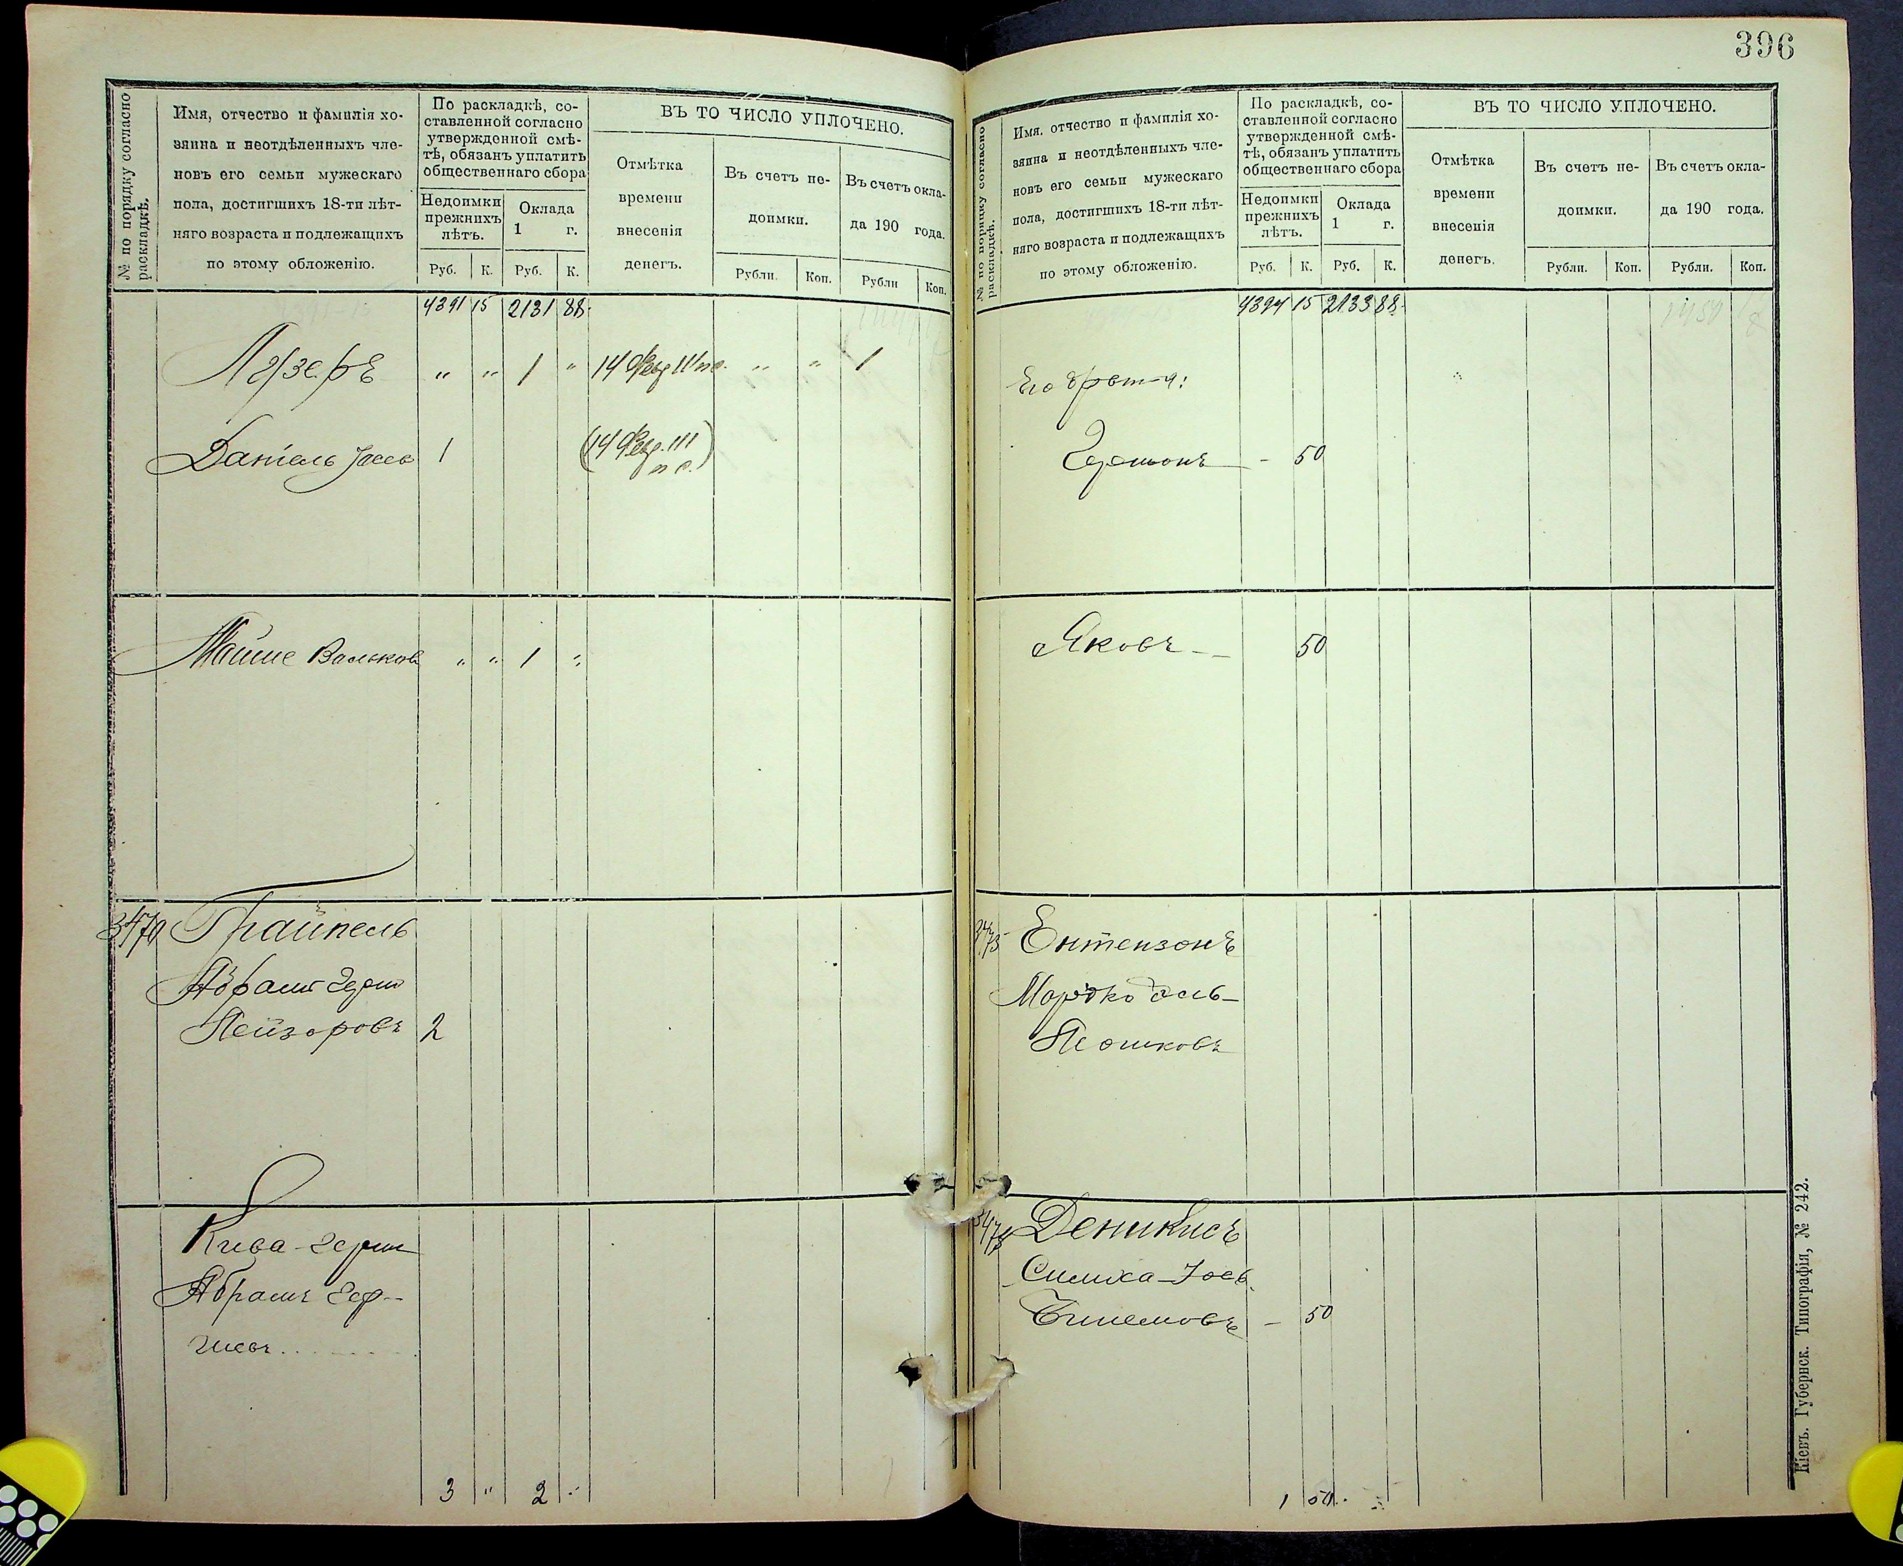 396
№ по порядку согласно раскладкѣ.
Имя, отчество и фамилія хо-
зяина и неотдѣленныхъ чле-
новъ его семьи мужескаго
пола, достигшихъ 18-ти лѣт-
няго возраста и подлежащихъ
по этому обложенію.
По раскладкѣ, со-
ставленной согласно
утвержденной смѣ-
тѣ, обязанъ уплатить
общественнаго сбора
Недоимки
прежнихъ
лѣтъ.
Оклада
1 г.
Руб. К. Руб. К.
ВЪ ТО ЧИСЛО УПЛОЧЕНО.
Отмѣтка
времени
внесенія
денегъ.
Въ счетъ не-
доимки.
Въ счетъ окла-
да 190 года.
Рубли. Коп. Рубли Коп.
4391 15 2131 88.
Лейзеръ „ „ 1 „ „ „ 1
Даніель Іосев 1
Мойше Вольков „ „ 1 „
3470 Грайпель
Абрамъ Герш
Лейзоровъ 2
Кива-Герш
Абрамъ Гер-
шевъ
3 „ 2
№ по порядку согласно раскладкѣ.
Имя, отчество и фамилія хо-
зяина и неотдѣленныхъ чле-
новъ его семьи мужескаго
пола, достигшихъ 18-ти лѣт-
няго возраста и подлежащихъ
по этому обложенію.
По раскладкѣ, со-
ставленной согласно
утвержденной смѣ-
тѣ, обязанъ уплатить
общественнаго сбора
Недоимки
прежнихъ
лѣтъ.
Оклада
1 г.
Руб. К. Руб. К.
ВЪ ТО ЧИСЛО УПЛОЧЕНО.
Отмѣтка
времени
внесенія
денегъ.
Въ счетъ не-
доимки.
Въ счетъ окла-
да 190 года.
Рубли. Коп. Рубли. Коп.
4394 15 2133 88.
Его братья:
Гершонъ - 50
Яковъ - 50
Ентензонъ
Мордко
Пошковъ
Деникисъ
Симха-Іось
- 50
1 50
Кіевъ. Губернск. Типографія, № 242.